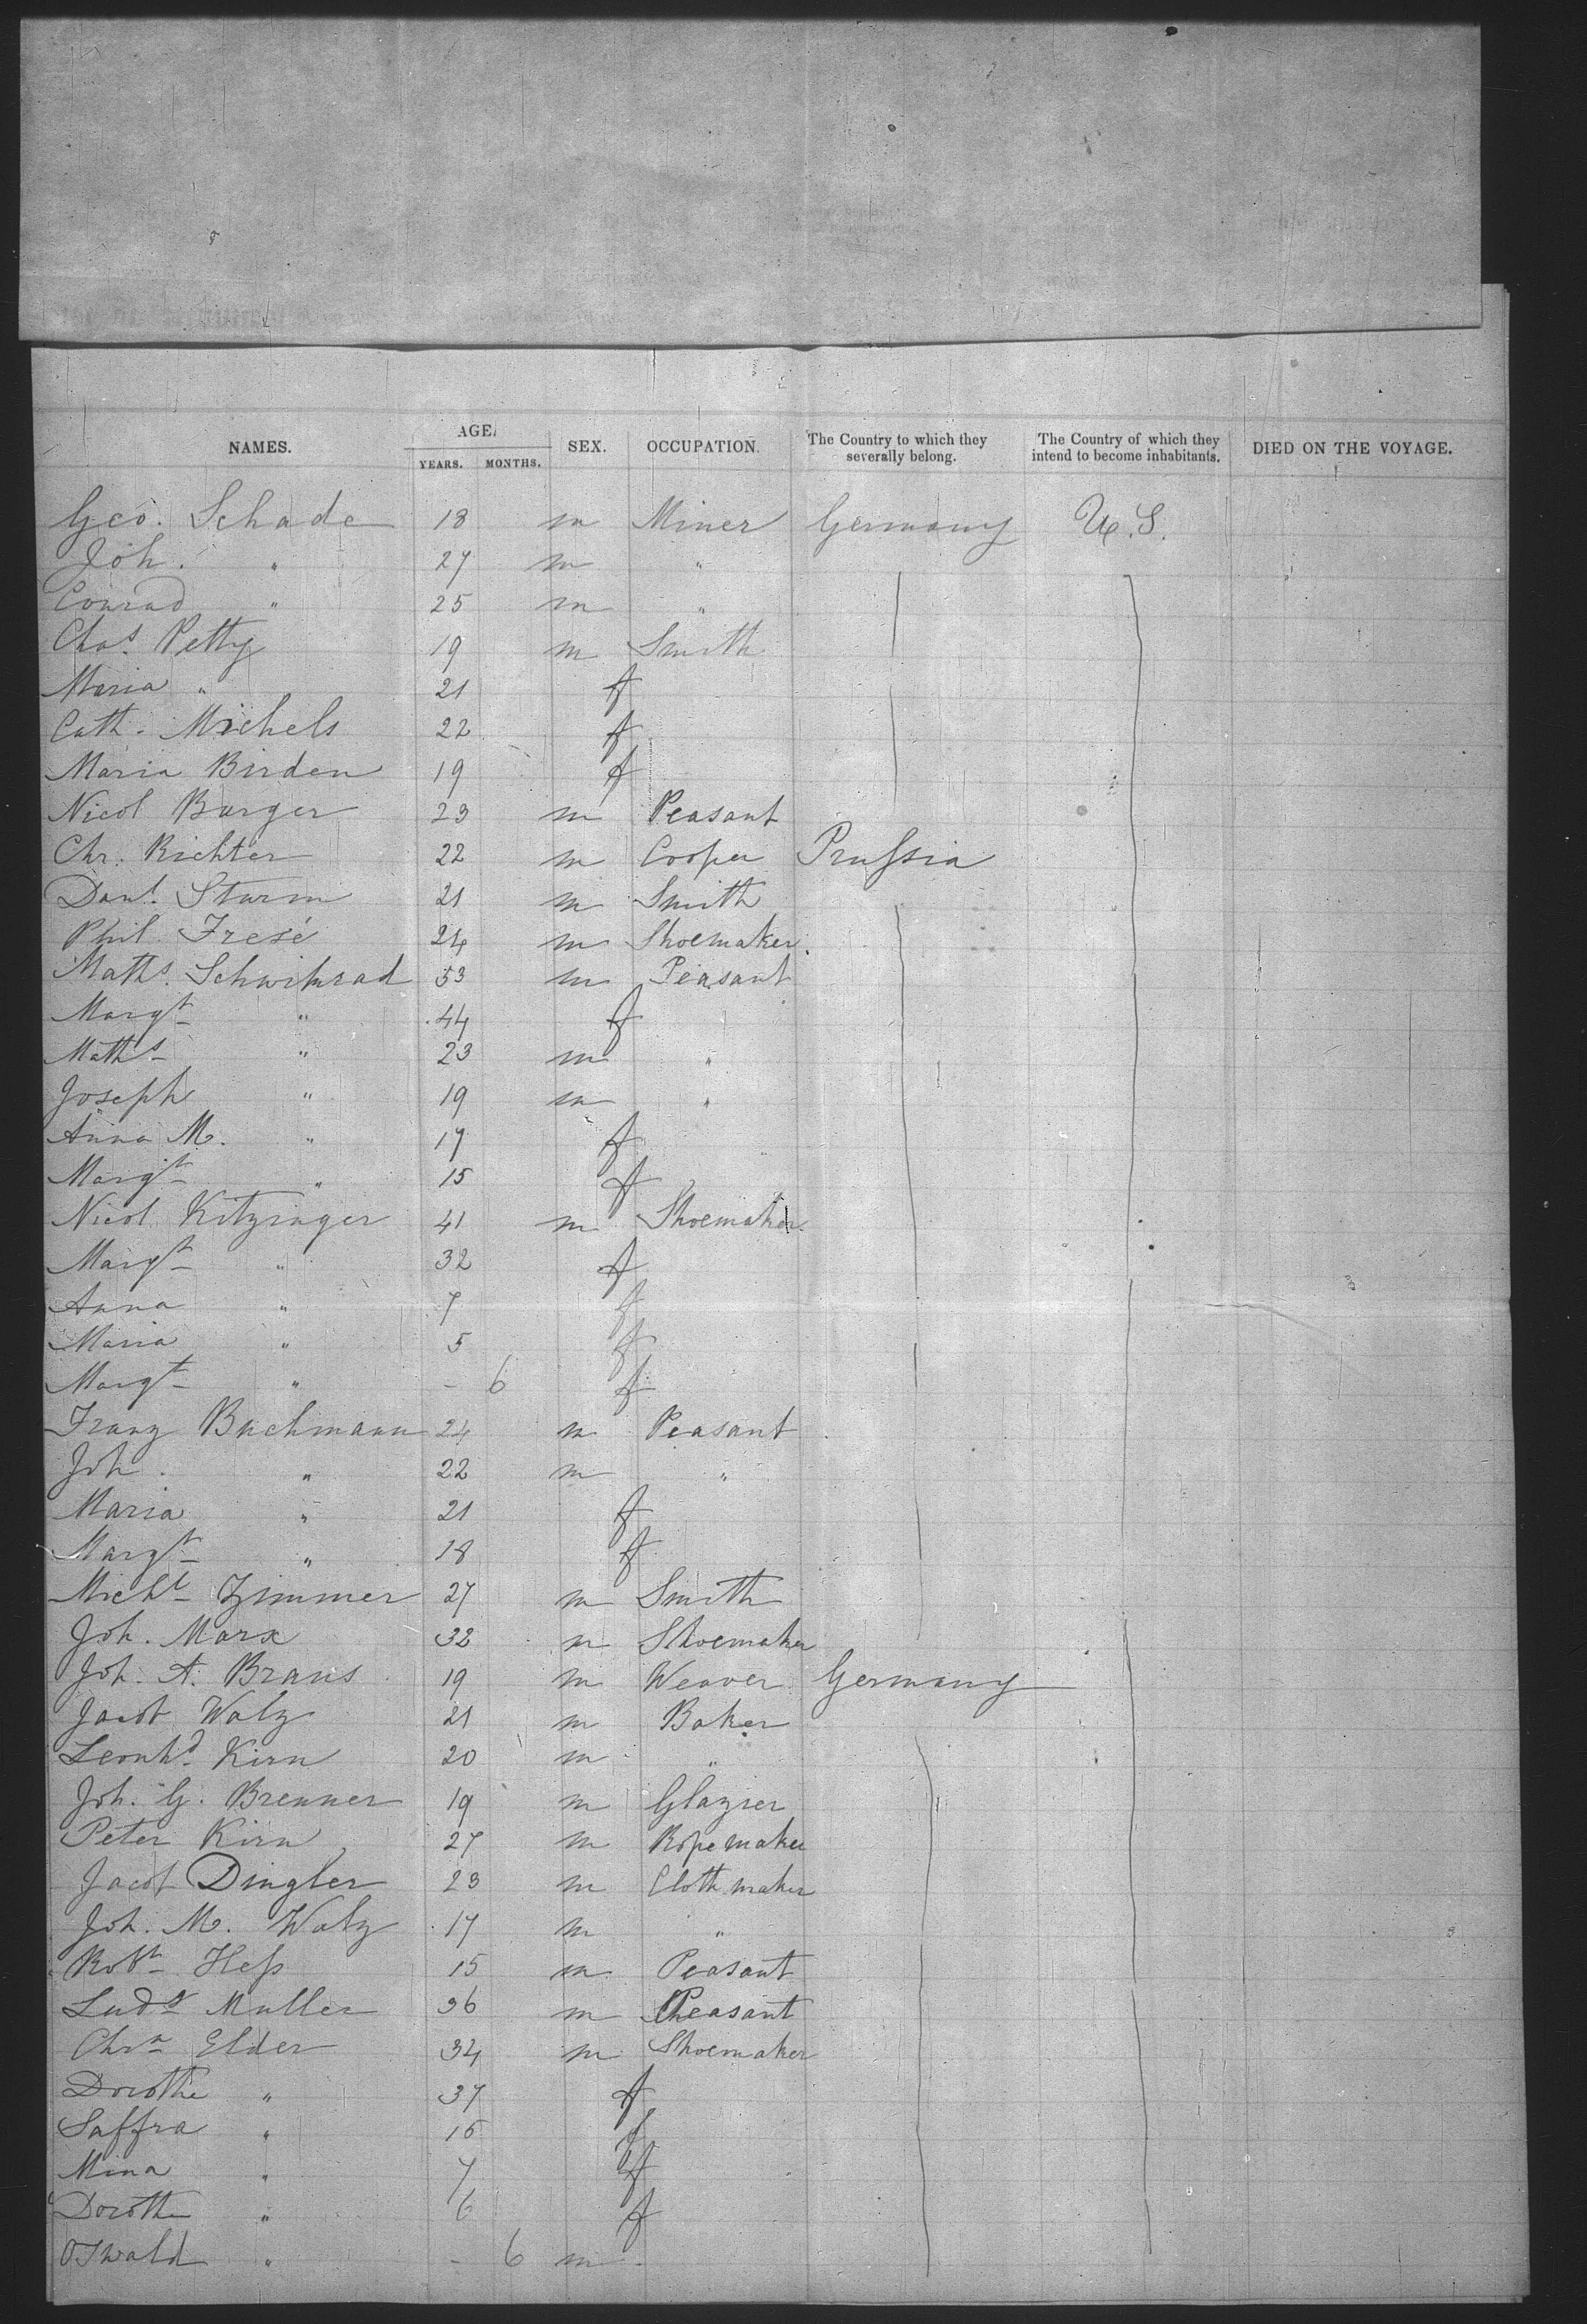 NAMES. AGE. YEARS. MONTHS. SEX. OCCUPATION. The Country to which they severally belong. The Country of which they intend to become inhabitants. DIED ON THE VOYAGE.
Geo. Schade 18 m Miner Germany U.S.
Joh. " 27 m "
Conrad " 25 m "
Chas. Petty 19 m Smith
Maria " 21 f
Cath. Michels 22 f
Maria Birden 19 f
Nicol Burger 23 m Peasant
Chr. Richter 22 m Cooper Prussia
Danl. Sturm 21 m Smith
Phil. Fresé 24 m Shoemaker
Maths. 53 m Peasant
Margt " 44 f
Maths " 23 m "
Joseph " 19 m "
Anna M. " 17 f
Margt " 15 f
Nicol Kitzinger 41 m Shoemaker
Margt " 32 f
Anna " 7 f
Maria " 5 f
Margt " - 6 f
Franz Buchmann 24 m Peasant
Joh. " 22 m "
Maria " 21 f
Margt " 18 f
Michl Zimmer 27 m Smith
Joh. Marx 32 m Shoemaker
Joh. A. Braus 19 m Weaver Germany
Jacob Walz 21 m Baker
Leonhd Kirn 20 m "
Joh. G. Brenner 19 m Glazier
Peter Kirn 27 m Ropemaker
Jacob Dingler 23 m Cloth maker
Joh. M. Walz 17 m "
Robt Hess 15 m Peasant
Ludg Muller 36 m Peasant
Chrn Elder 34 m Shoemaker
Dorothe " 37 f
Saffra " 15 f
Mina " 7 f
Dorothe " 6 f
Oswald " - 6 m